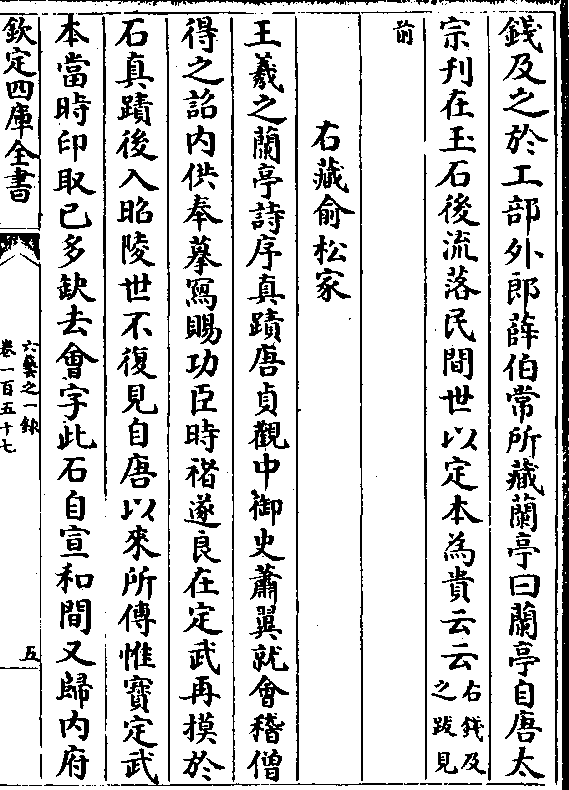 錢及之於工部外郎薛伯常所藏蘭亭曰蘭亭自唐太
宗刋在玉石後流落民間世以定本為貴云云右錢及之跋見
前
右藏俞松家
王羲之蘭亭詩序真蹟唐貞觀中御史蕭翼就會稽僧
得之詔内供奉摹寫賜功臣時褚遂良在定武再摸於
石真蹟後入昭陵世不復見自唐以來所傳惟寳定武
本當時印取已多缺去會字此石自宣和間又歸内府
欽定四庫全書
六藝之一録
卷一百五十七
五